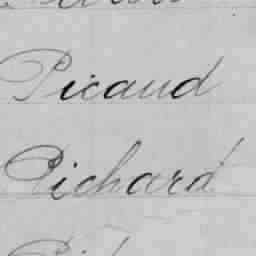 Picaud
Pichard